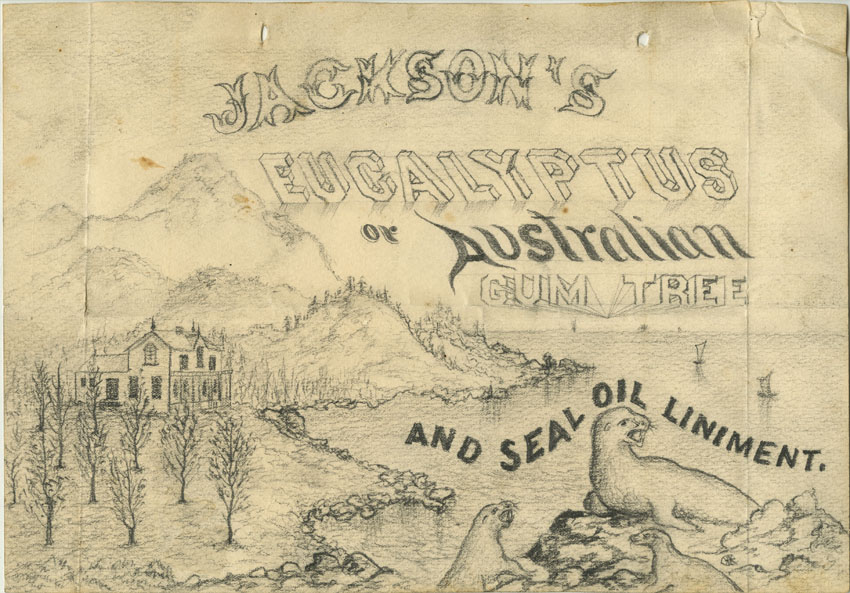 JACKSON'S
EUCALYPTUS
or Australian
GUM TREE
AND SEAL OIL LINIMENT.